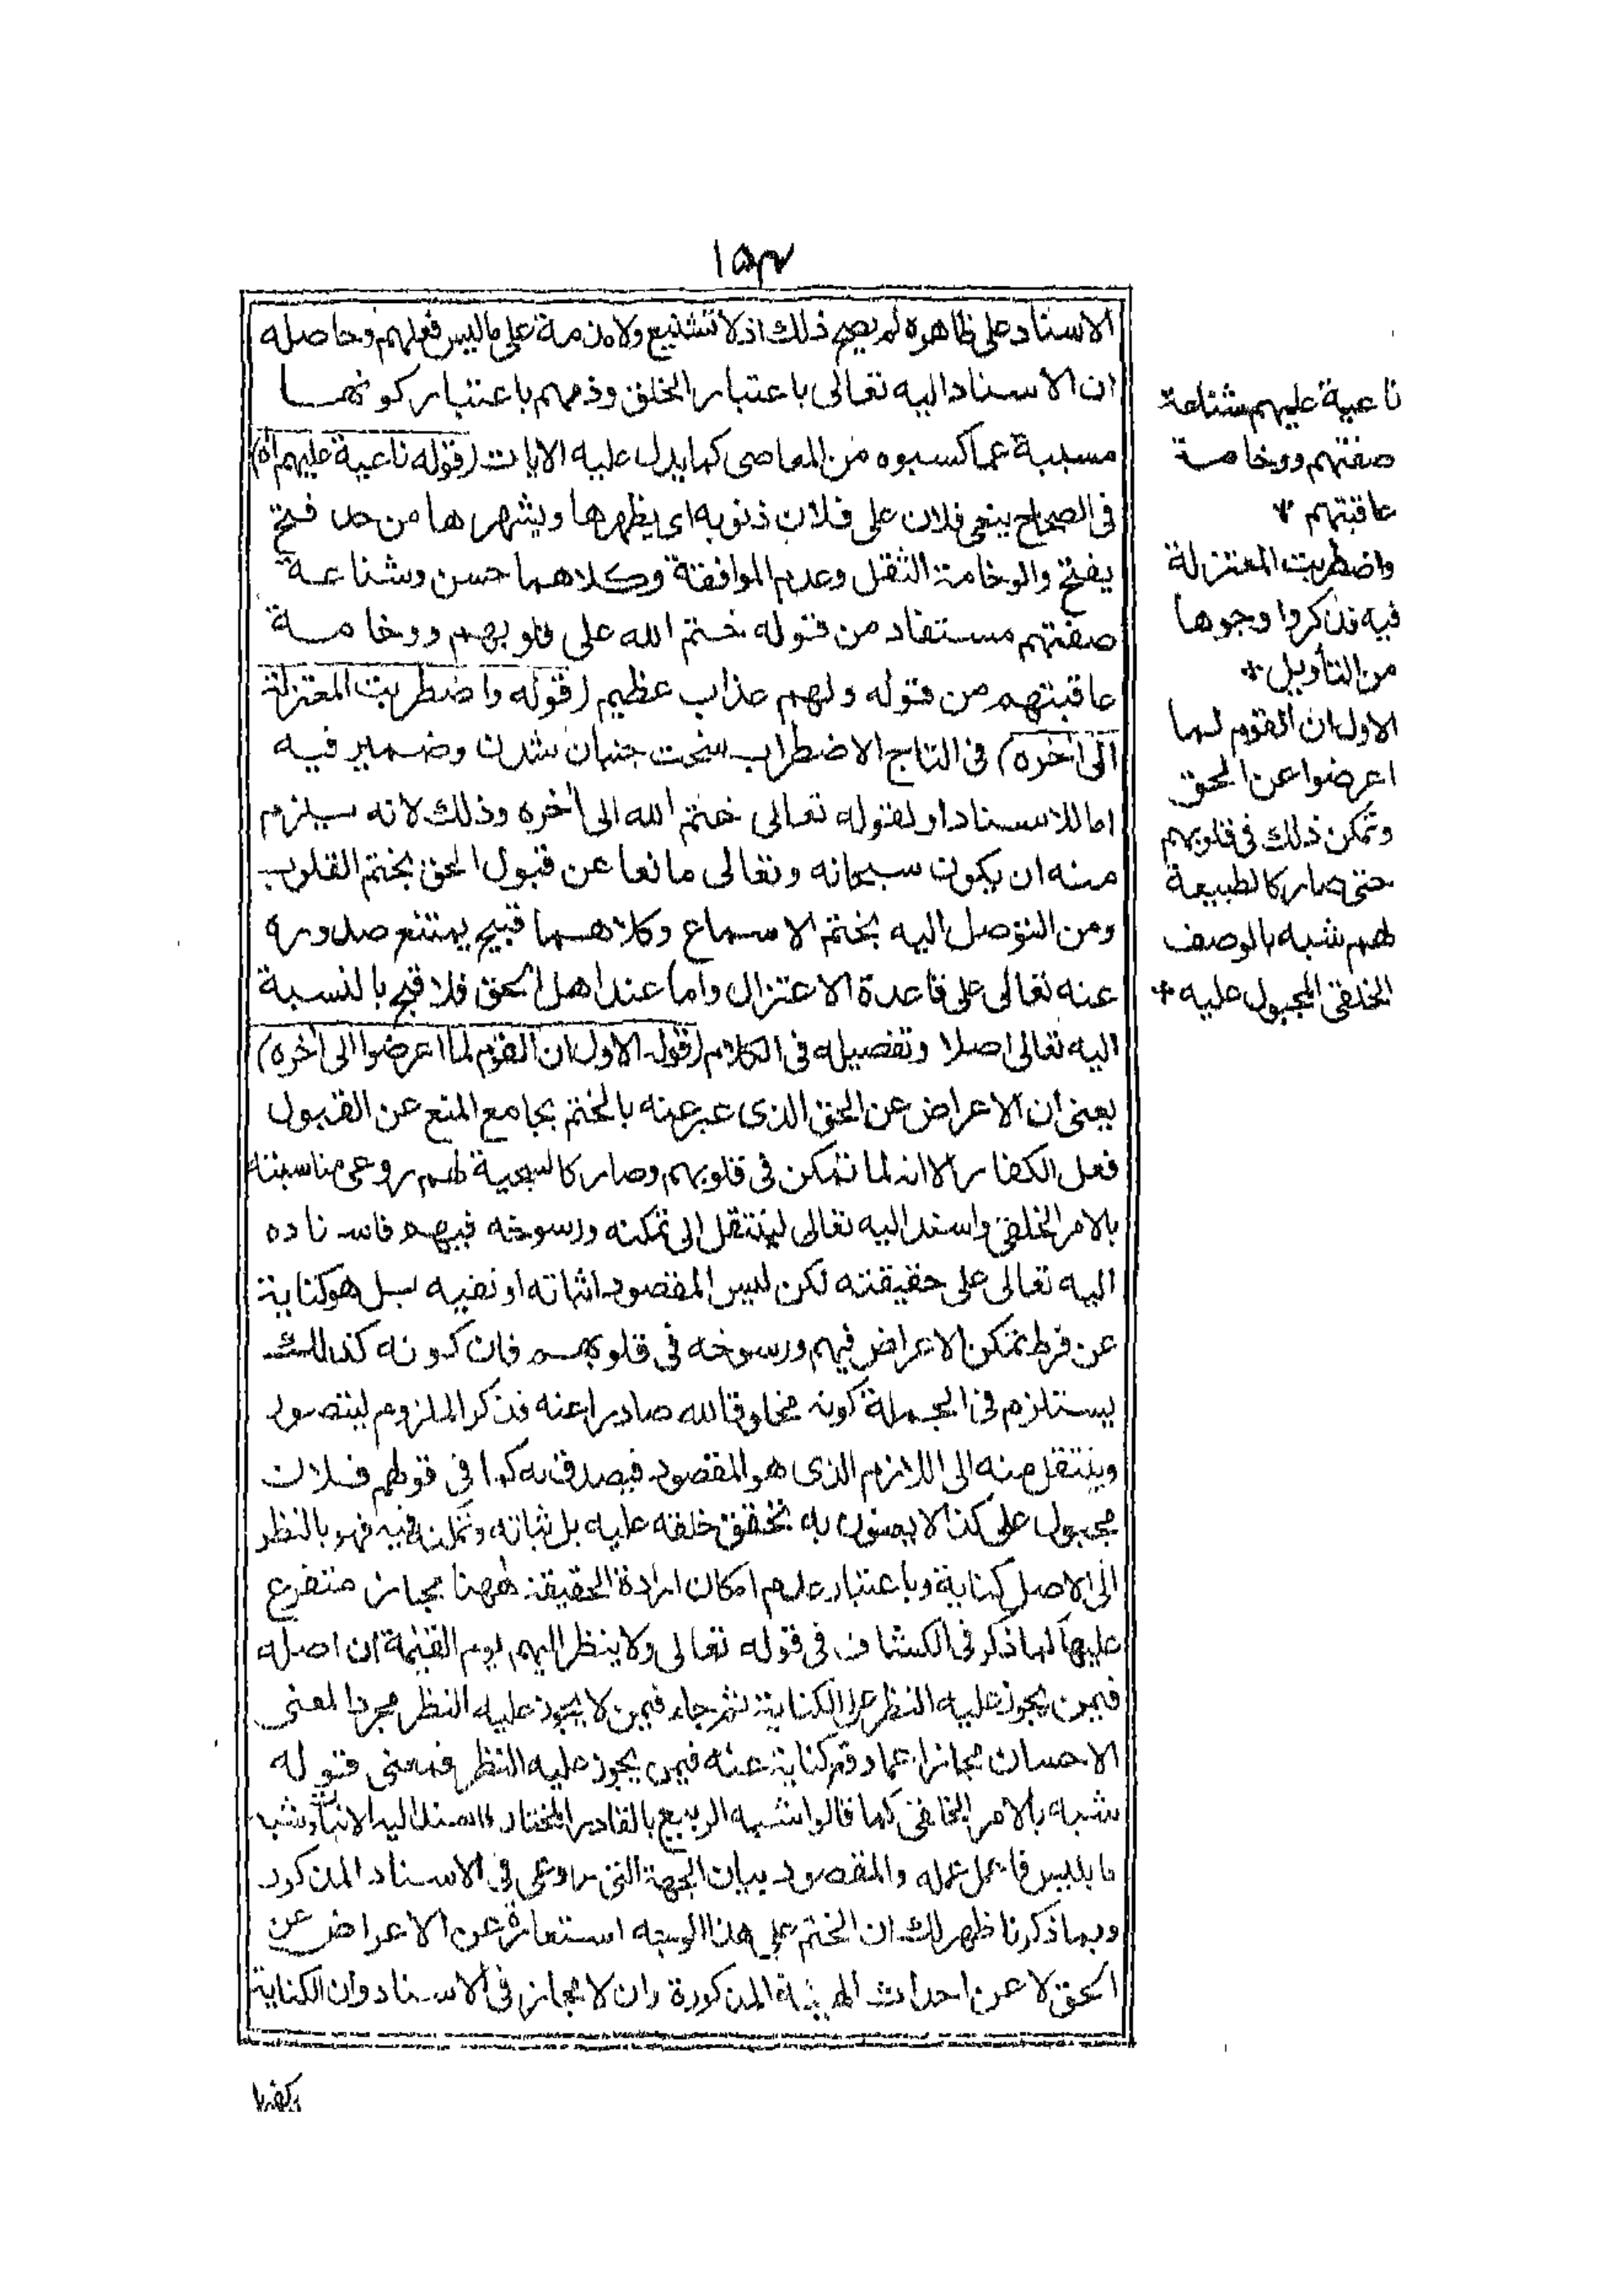 ١٥٣
الاسناد على ظاهره لم يصح ذلك اذ لا تشنيع ولا مذمة على ما ليس فعلهم وحاصله
ان الاسناد اليه تعالى باعتبار الخلق وذمهم باعتبار كونهما
مسببة عما كسبوه من المعاصى كما يدل عليه الايات (قوله ناعية عليهم اه)
فى الصحاح ينعى فلان على فلان ذنوبه اى يظهرها ويشهرها من حد فتح
يفتح والوخامة الثقل وعدم الموافقة وكلاهما حسن وشناعة
صفتهم مستفاد من قوله ختم الله على قلوبهم ووخامة
عاقبتهم من قوله ولهم عذاب عظيم (قوله واضطربت المعتزلة
الى اخره) فى التاج الاضطراب سخت جنبان شدن وضمير فيه
اما للاسناد او لقوله تعالى ختم الله الى اخره وذلك لانه سيلزم
منه ان يكون سبحانه وتعالى مانعا عن قبول الحق بختم القلوب
ومن التوصل اليه بختم الاسماع وكلاهما قبيح يمتنع صدوره
عنه تعالى على قاعدة الاعتزال واما عند اهل الحق فلا قبح بالنسبة
اليه تعالى اصلا وتفصيله فى الكلام (قوله الاول ان القوم لما اعرضوا الى اخره)
يعنى ان الاعراض عن الحق الذى عبر عنه بالختم بجامع المنع عن القبول
فعل الكفار الا انه لما تمكن فى قلوبهم وصار كالسجية لهم روعى مناسبته
بالامر الخلقى واسند اليه تعالى لينتقل الى تمكنه ورسوخه فيهم فاسناده
اليه تعالى على حقيقته لكن ليس المقصود اثباته او نفيه بل هو كناية
عن فرط تمكن الاعراض فيهم ورسوخه فى قلوبهم فان كونه كذلك
يستلزم فى الجملة كونه مخلوقا لله صادرا عنه فذكر الملزوم ليتصور
وينتقل منه الى اللازم الذى هو المقصود فيصدق به كما فى قولهم فلان
مجبول على كذا لا يعنون به تحقق خلقه عليه بل ثباته وتمكنه فيه فهو بالنظر
الى الاصل كناية وباعتبار عدم امكان ارادة الحقيقة ههنا مجاز متفرع
عليها لما ذكر فى الكشاف فى قوله تعالى ولا ينظر اليهم يوم القيمة ان اصله
فيمن يجوز عليه النظر الكناية ثم جاء فيمن لا يجوز عليه النظر مجردا لمعنى
الاحسان مجازا عما وقع كناية عنه فيمن يجوز عليه النظر فمعنى قوله
شبه بالامر الخلقى كما قالوا شبه الربيع بالقادر المختار واسند اليه الانبات وشبه
ما بليس فاعمل عمله والمقصود بيان الجهة التى روعى فى الاسناد المذكور
وبما ذكرنا ظهر لك ان الختم على هذا الوجه استعارة عن الاعراض عن
الحق لا عن احداث الهيئة المذكورة وان لا مجاز فى الاسناد وان الكناية
ناعية عليهم شناعة
صفتهم ووخامة
عاقبتهم
واضطربت المعتزلة
فيه فذكروا وجوها
من التأويل *
الاول ان القوم لما
اعرضوا عن الحق
وتمكن ذلك فى قلوبهم
حتى صار كالطبيعة
لهم شبه بالوصف
الخلقى المجبول عليه *